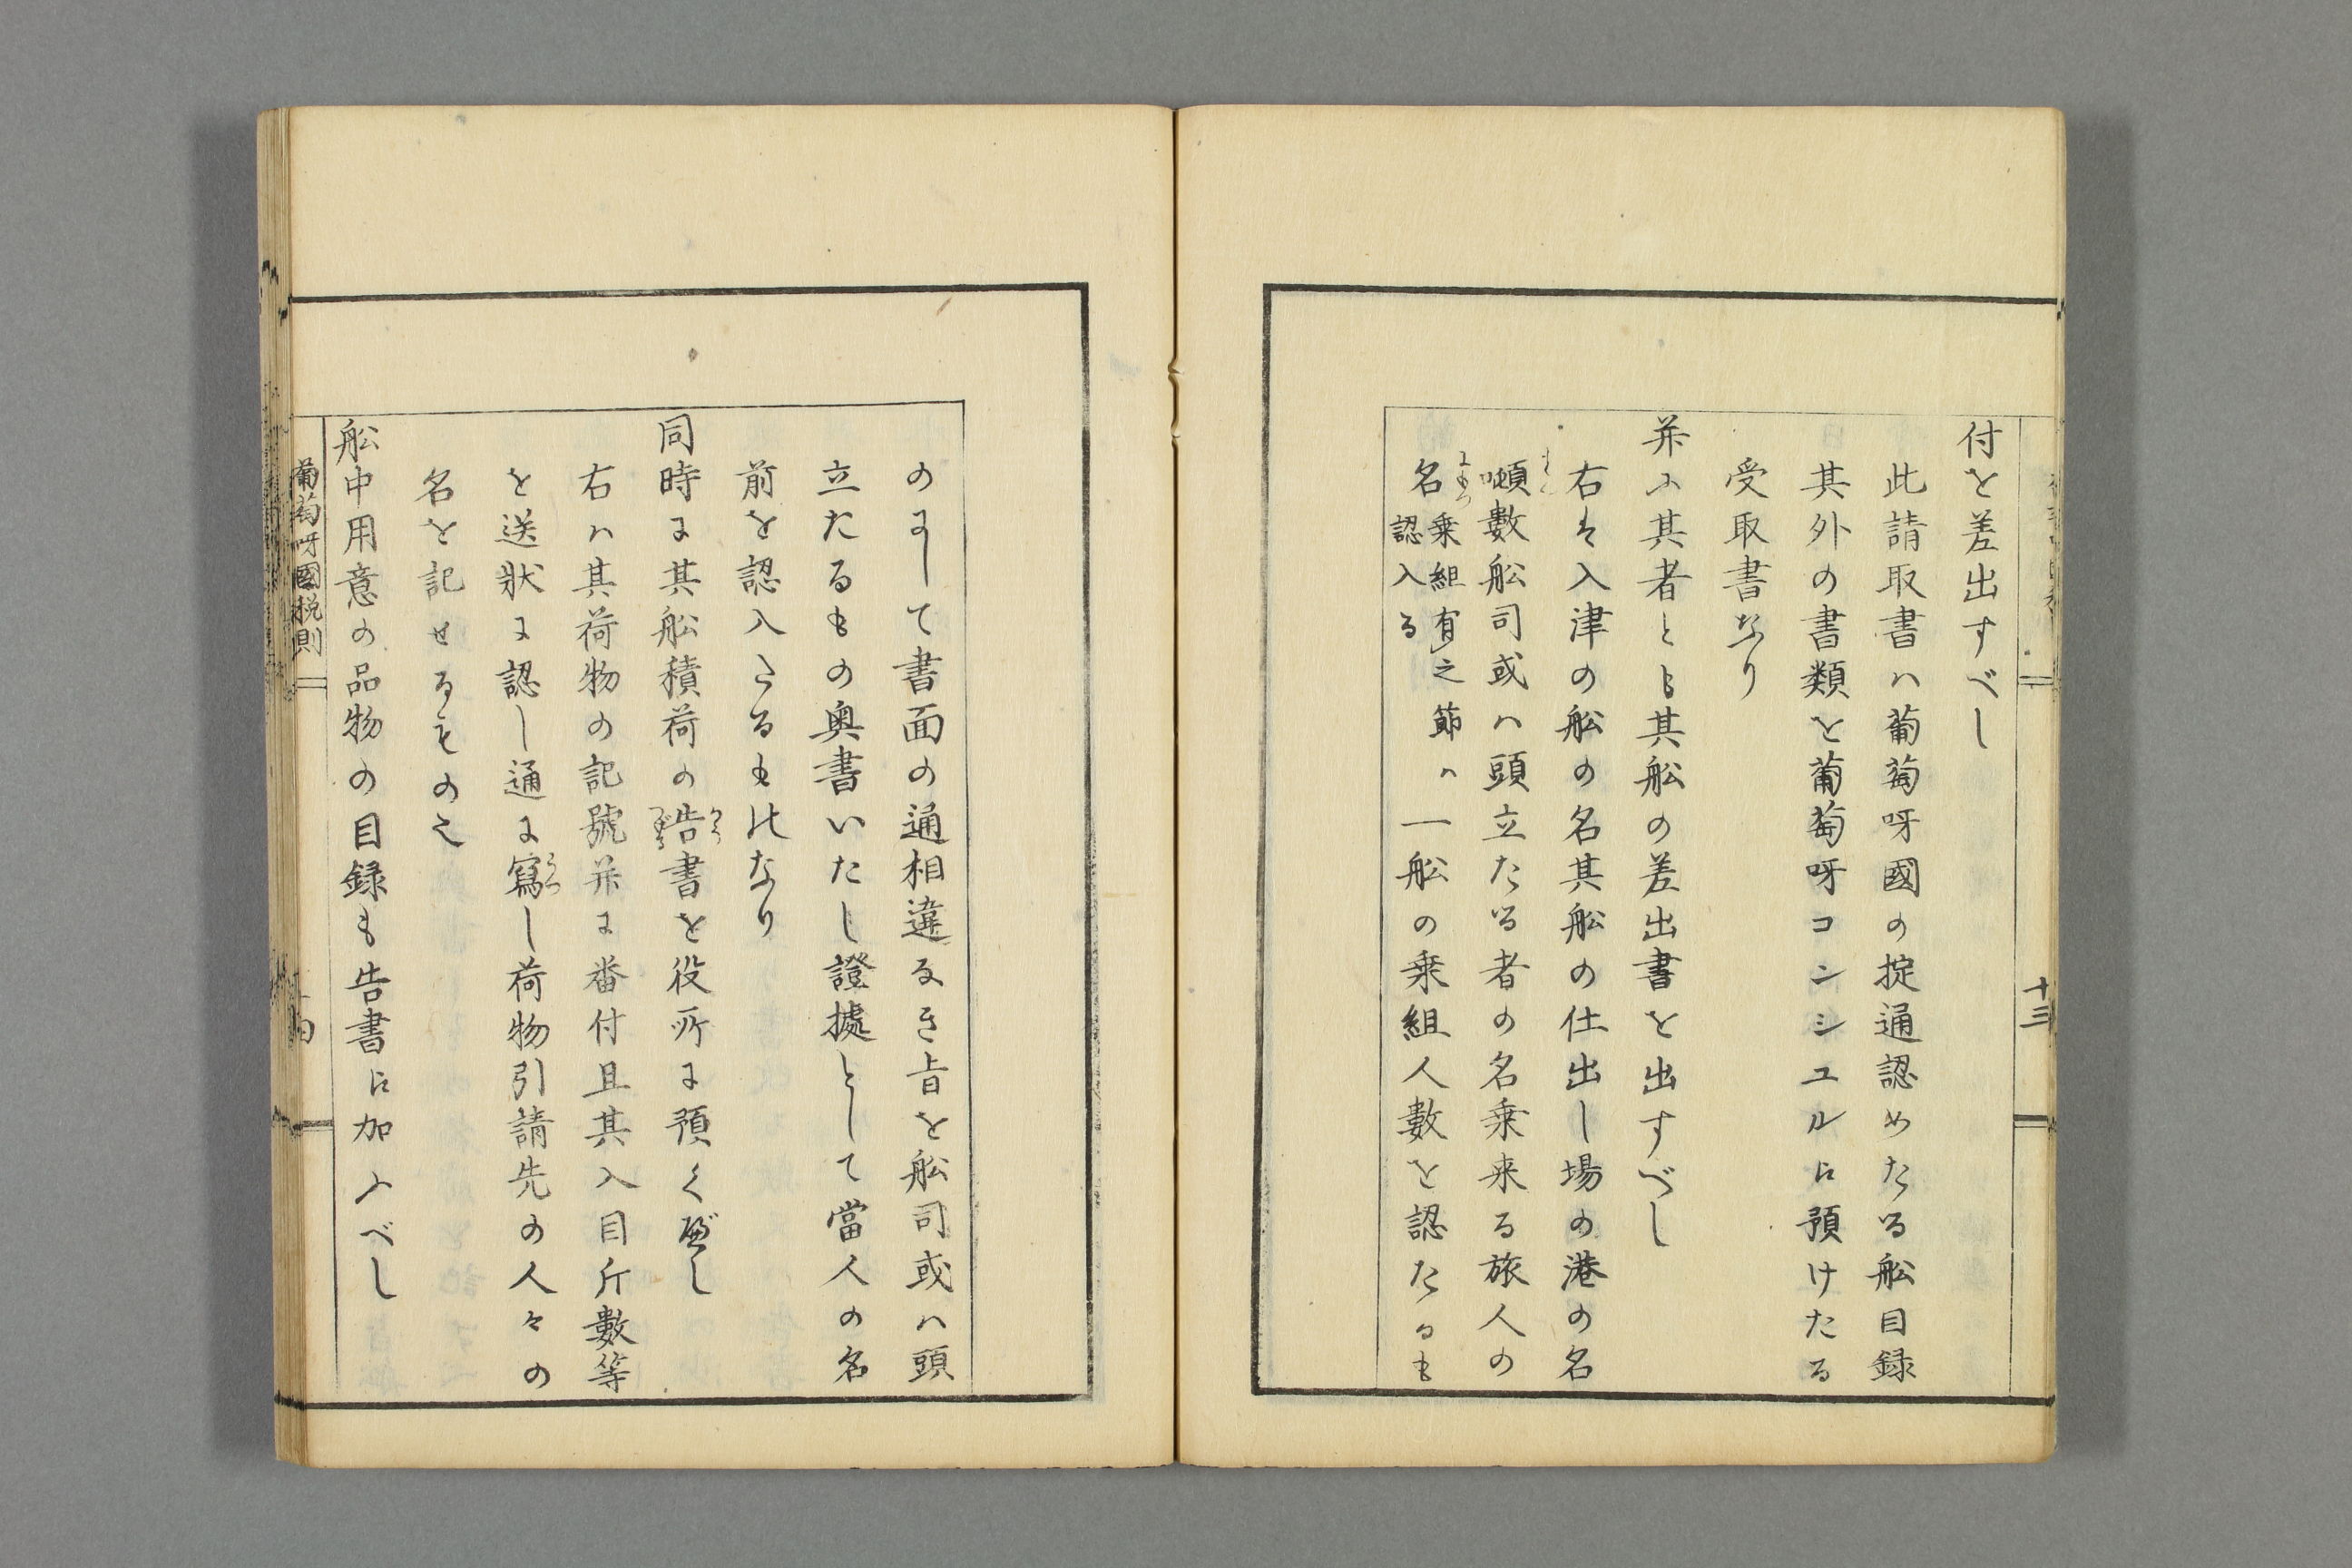 付を差出すべし
此請取書ハ葡萄呀國の掟通認めたる舩目録
其外の書類を葡萄呀コンシユルに預けたる
受取書なり
并に其者とも其舩の差出書を出すべし
右は入津の舩の名其舩の仕出し場の港の名
噸數舩司或ハ頭立たる者の名乗来る旅人の
名乗組有之節ハ認入る一舩の乗組人數を認たるも
十三
のにして書面の通相違なき旨を舩司或ハ頭
立たるもの奥書いたし證據として當人の名
前を認入たるものなり
同時に其舩積荷の告書を役所に預く邊し
右ハ其荷物の記號并に番付且其入目斤數等
を送狀に認し通に寫し荷物引請先の人々の
名を記せるもの之
舩中用意の品物の目録も告書に加ふべし
葡萄呀國税則